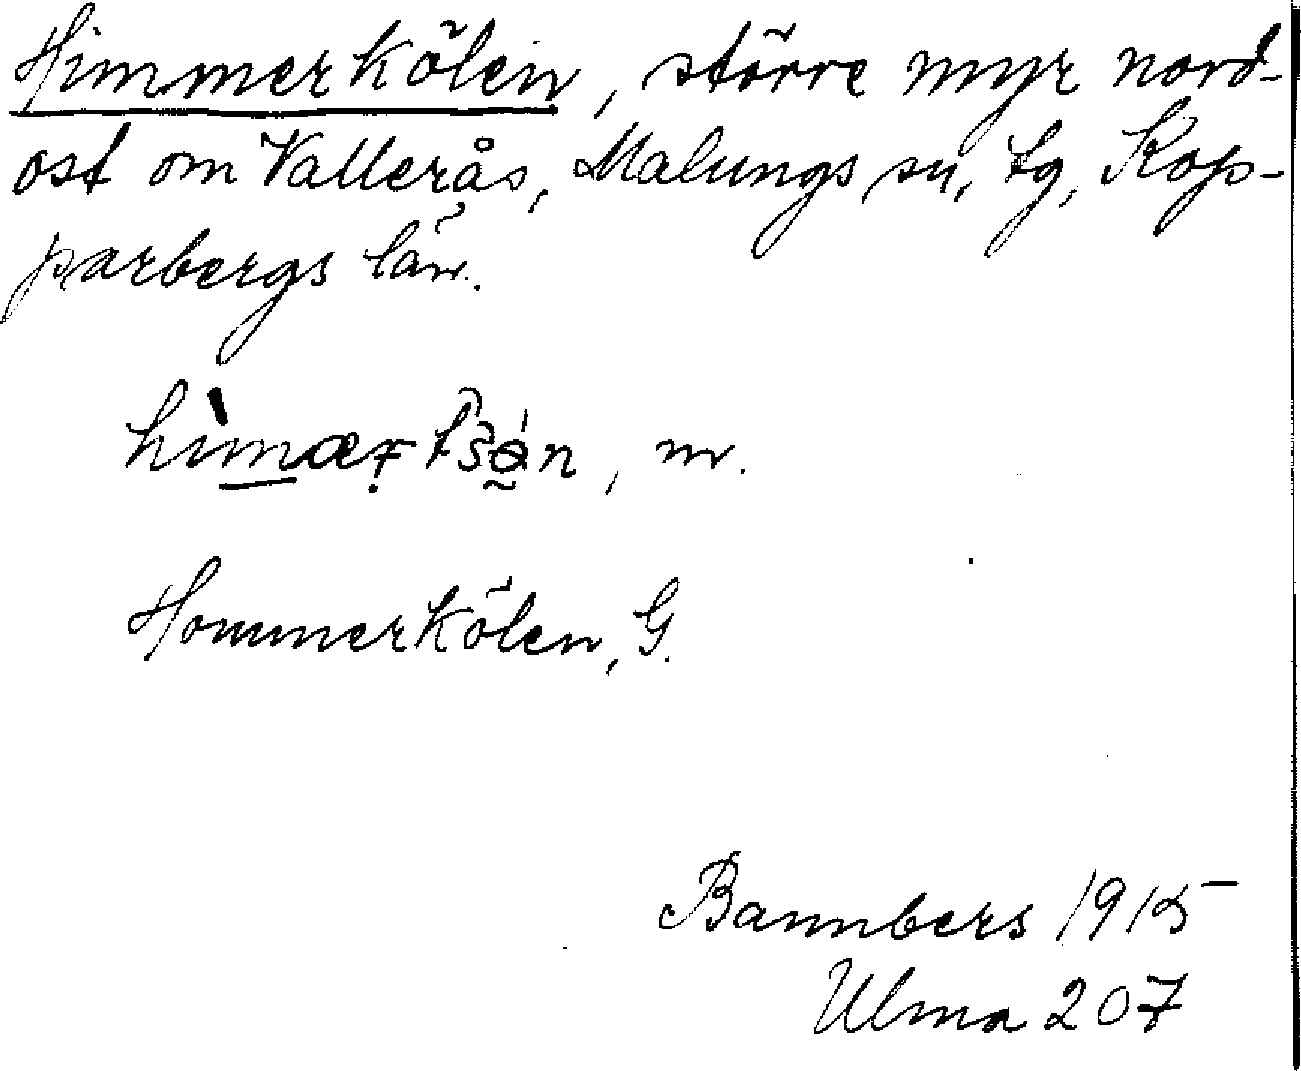 Himmerkölen, större myr nord-
ost om Vallerås, Malungs sn, tg, Kop-
parbergs län.
m.
Hommerkölen, G.
Bannbers 1915
Ulma 207